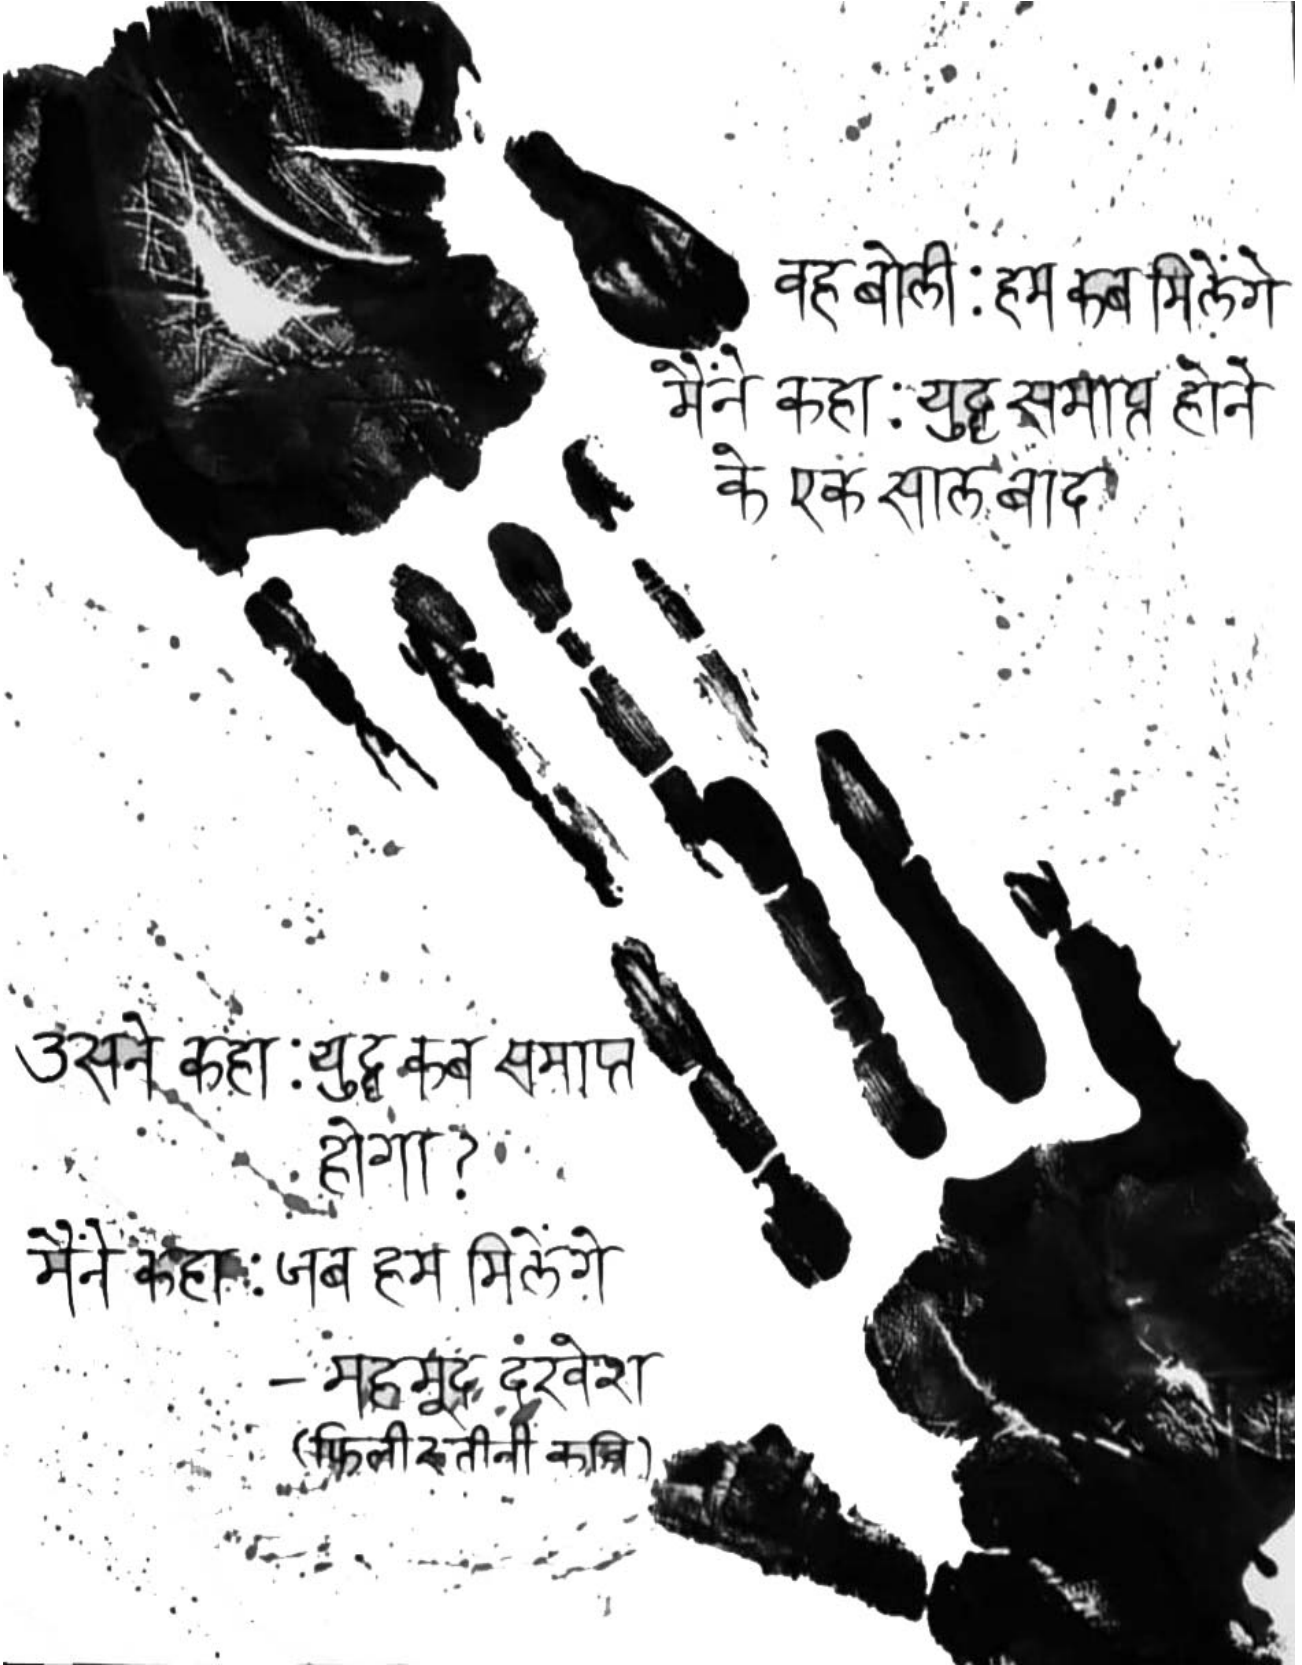 वह बोली : हम कब मिलेंगे
मैंने कहा : युद्ध समाप्त होने
के एक साल बाद
उसने कहा : युद्ध कब समाप्त
होगा ?
मैंने कहा : जब हम मिलेंगे
– महमूद दरवेश
(फिलीस्तीनी कवि)